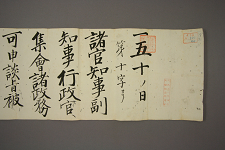 一五十ノ日
第十字ヨリ
諸官知事副
知事行政官
集會諸政務
可申談旨被